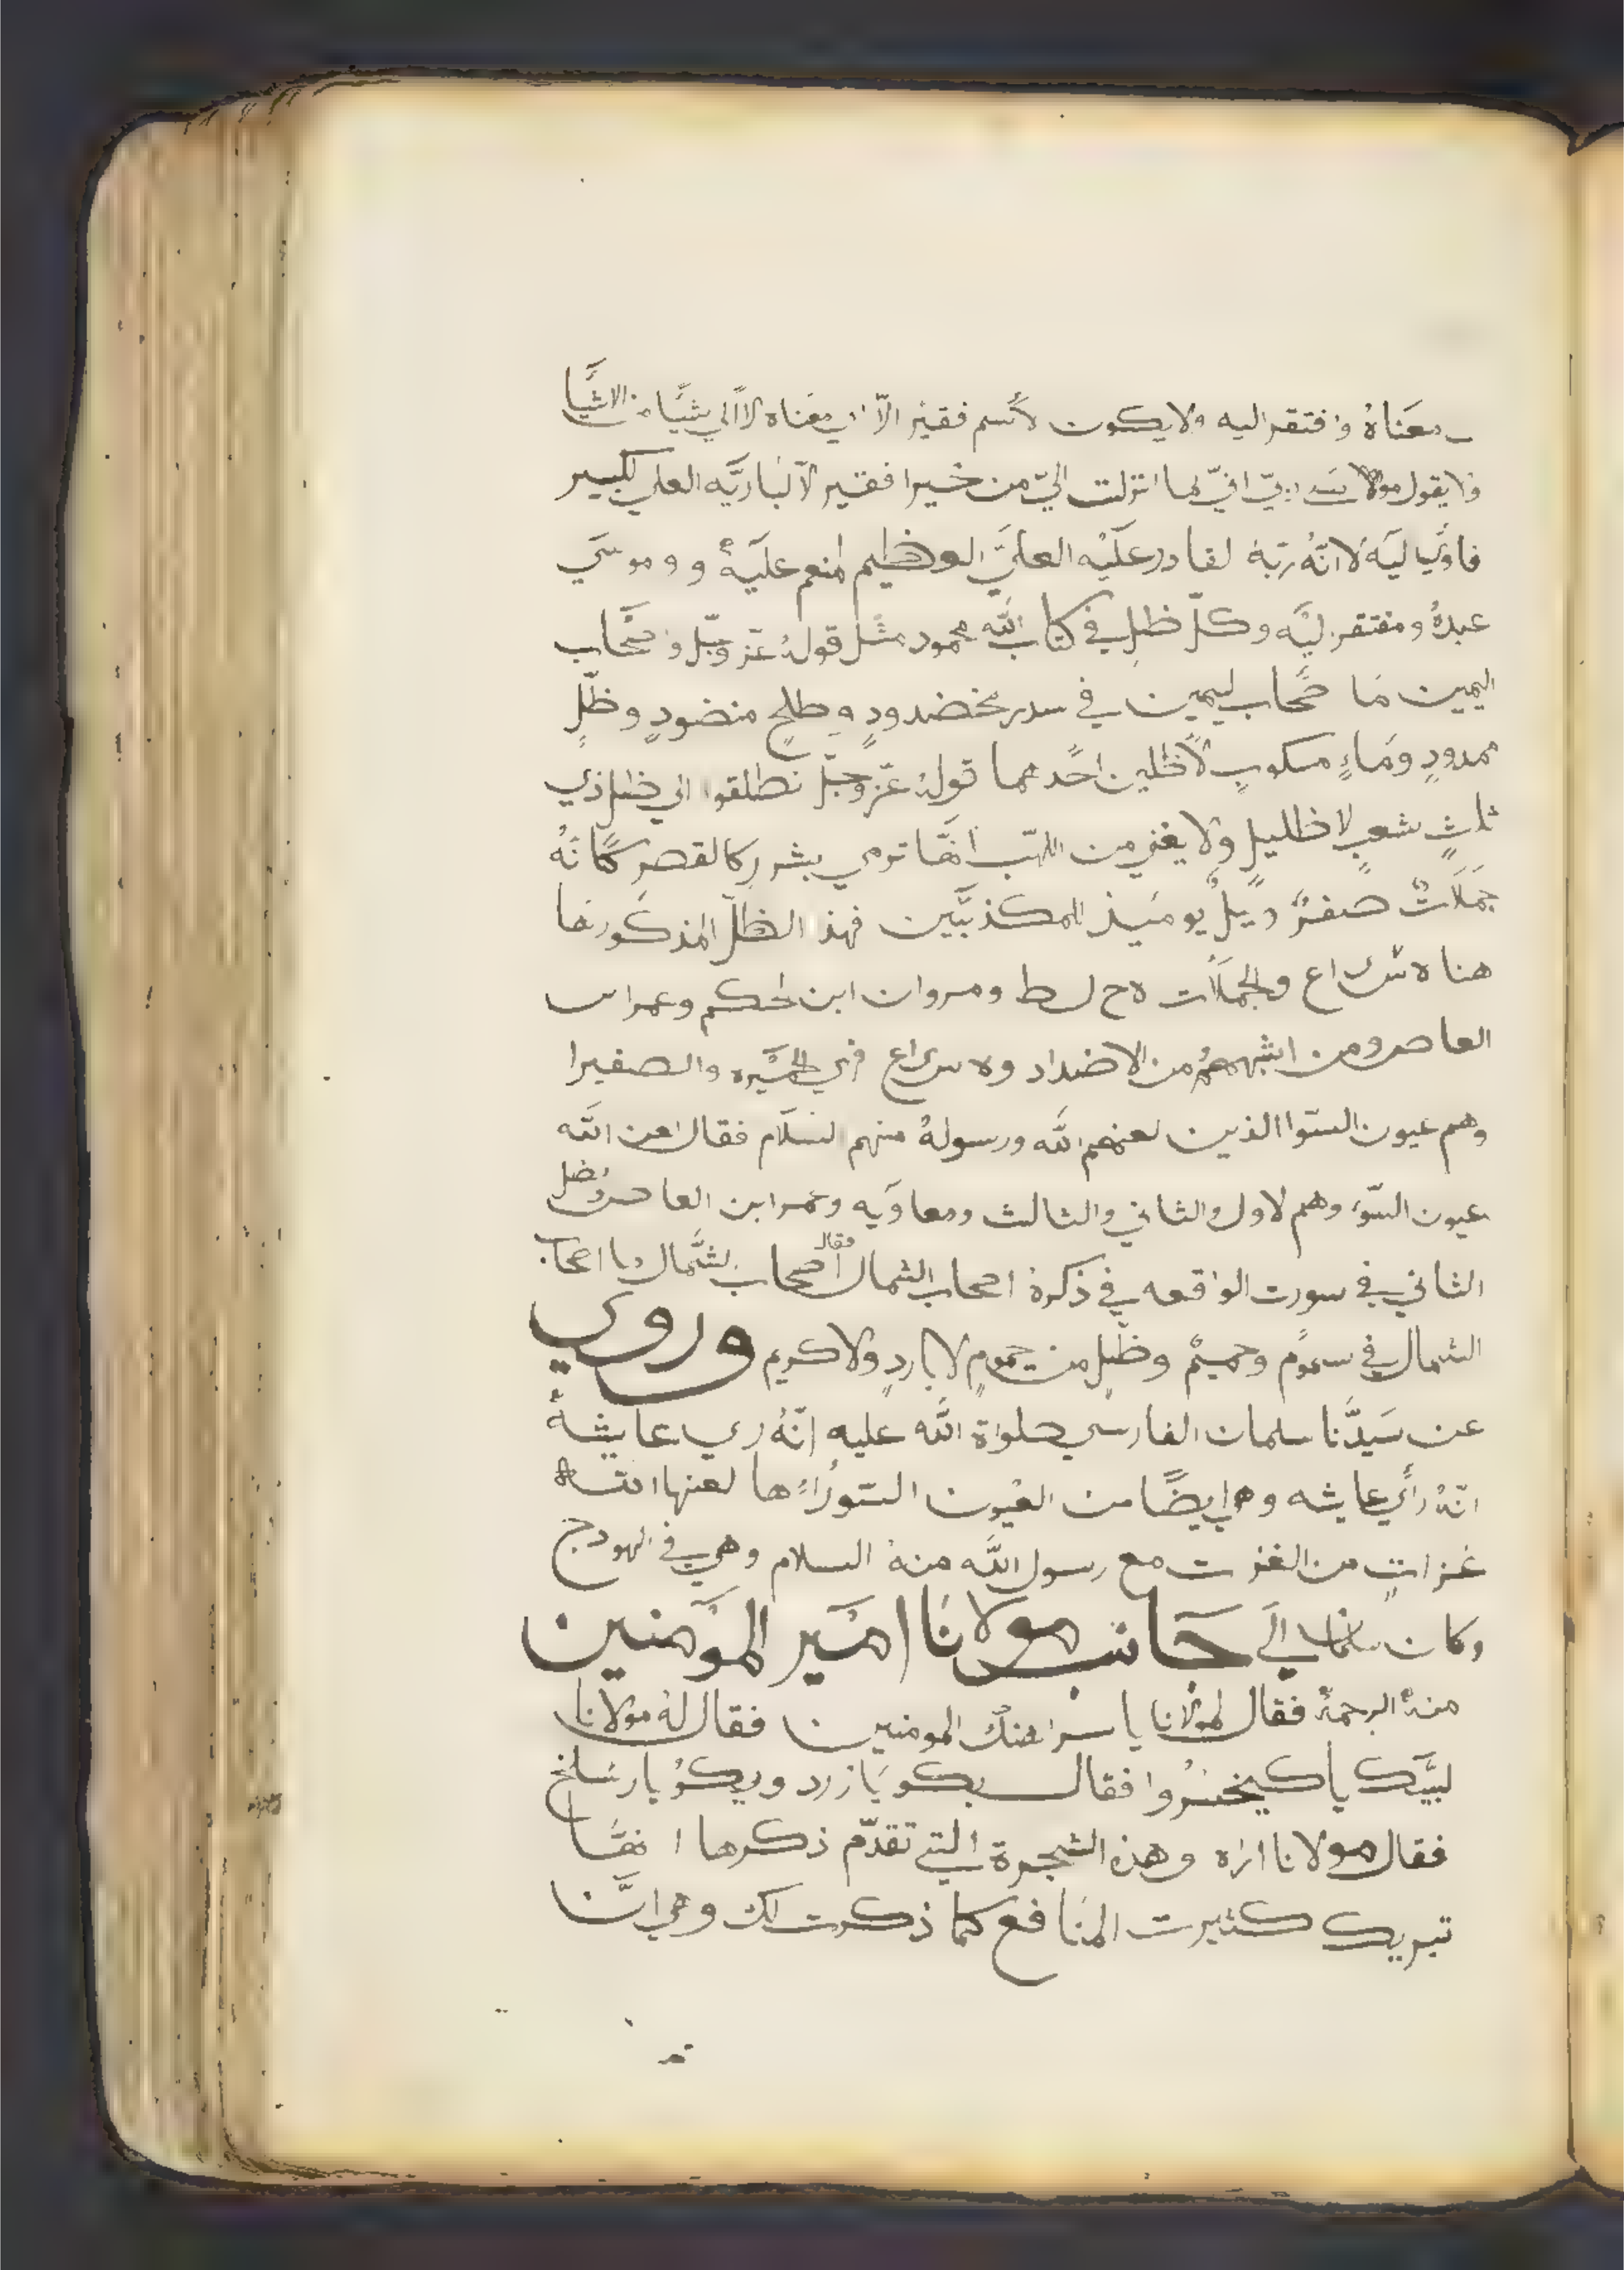 معناهُ وافتقر اليه ولا يكون لاسم فقير الا الي معناه لا الي شيَّا من الاشيَّا
فلا يقول مولا ربيّ انيّ لما انزلت اليّ من خيرا فقير لا لباريَّه العلي لكبير
فاوَّيا ليَه لانّهُ ربّهُ لقادر علَيْه العليَّ العظيم لمنعم عليَهْ و وموسَي
عبدهُ ومفتقر ليَّه وكلّ ظلٍ في كتاب اللَّه محمود مثل قولهُ عَزّ وجَّل واصَّحاب
اليمين مَا صَّحاب ليمين في سدر مخضدودٍ وطلحٍ منضودٍ وظلٍّ
ممدودٍ ومَاءٍ مسكوبٍ لاظلين احَّدهما قولهُ عَزّ وجَلّ نطلقوا الي ظل ذي
ثلثٍ شعبٍ لا ظليلٍ ولا يغني من اللّهب انَّها ترمي بشررٍ كالقصر كَانّهُ
جمَلَاتٌ صفرٌ ويلٌ يوميَذ للمكذبَّين فهذ الظلّ المذكَور هَا
هنا ه س ك ا ع ولجملَات ه ح ل ط ومروان ابن لحكم وعمر اس
العاص ومن اشبههمُ من الاضداد و ه س ك ا ع فهي لحمَّيره والصفيرا
وهم عيون السّوا الذين لعنهم اللَّه ورسولهُ منهم لسَلَام فقال لعن اللَّه
عيون السّوَء وهم لاول والثاني والثالث ومعاوَيه وعمر ابن العاص وُضل
الثاني في سورت الواقعه في ذكرهْ اصحاب الشمال فقال اصحاب لشَّمال ما اصحَاب
الشمال في سمومٍ وحميمٌ وظلٍ من يحمومٍ لا باردٍ ولا كريم وروي
عن سَيدَّنا سلمان الفارسي صلواة اللَّه عليه انّهُ ري عايشهْ
انّهُ رايَ عايشه وهي ايضًا من العيُون السّوُاءَ ها لعنها اللَّه
غزاتٍ من الغزت مع رسول اللَّه منهُ السلام وهي في الهودج
وكان سلمان الَي جَانب مولانَا امَيَر الموَمنين
منهُ الرحمهْ فقال لمولانا يا المومنين فقال لهُ مولانا
لبيَّك يا كيخسرُوا فقال بكو يَازرد وبكوُ يا رسَلخ
فقال مولانا اراه وهذه الشجرة التي تقدّم ذكرها انفًّا
تبريك كثيرت المنَافع كما ذكرت لك وهي انَّنا